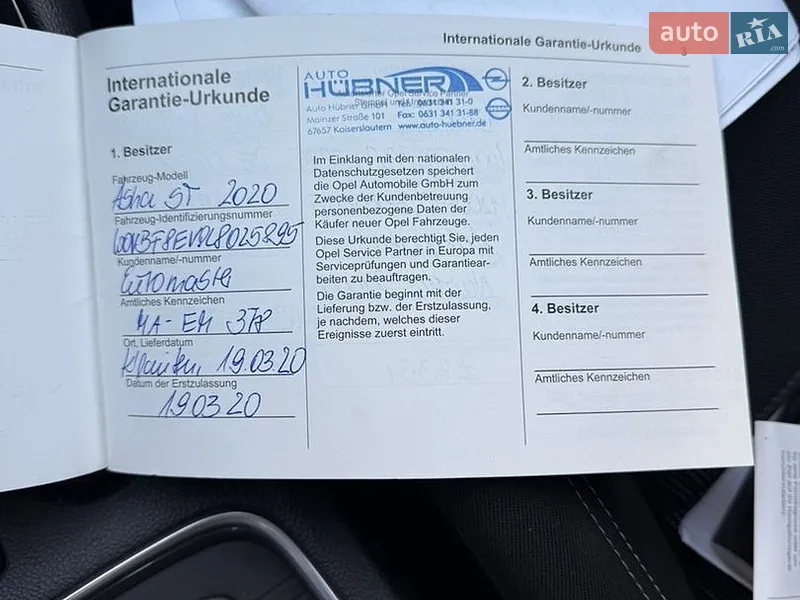 auto RIA .com
Internationale Garantie-Urkunde
3
Internationale
Garantie-Urkunde
1. Besitzer
Fahrzeug-Modell
Astra ST 2020
Fahrzeug-Identifizierungsnummer
Kundenname/-nummer
Euromaster
Amtliches Kennzeichen
MA-EM 378
Ort, Lieferdatum
19.03.20
Datum der Erstzulassung
190320
AUTO
HÜBNER
Auto Hübner GmbH Tel. 0631 341 31-0
Mainzer Straße 101 Fax: 0631 341 31-88
67657 Kaiserslautern www.auto-huebner.de
Im Einklang mit den nationalen
Datenschutzgesetzen speichert
die Opel Automobile GmbH zum
Zwecke der Kundenbetreuung
personenbezogene Daten der
Käufer neuer Opel Fahrzeuge.
Diese Urkunde berechtigt Sie, jeden
Opel Service Partner in Europa mit
Serviceprüfungen und Garantiear-
beiten zu beauftragen.
Die Garantie beginnt mit der
Lieferung bzw. der Erstzulassung,
je nachdem, welches dieser
Ereignisse zuerst eintritt.
2. Besitzer
Kundenname/-nummer
Amtliches Kennzeichen
3. Besitzer
Kundenname/-nummer
Amtliches Kennzeichen
4. Besitzer
Kundenname/-nummer
Amtliches Kennzeichen